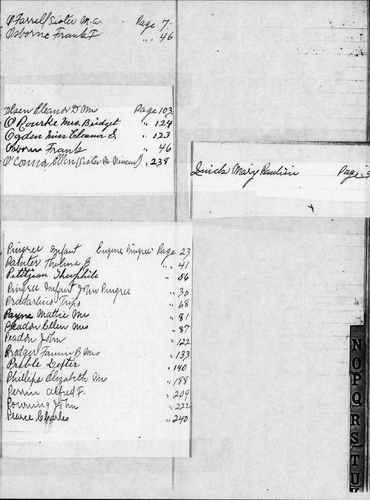 O'Farrell Sister M.A. Page 7
Osborne Frank F " 46
Olsen Eleanor D Mrs Page 103
O'Rourke Mrs. Bridget " 124
Ogden Miss Eleanor S " 123
Osborn Frank " 46
O'Connor Ellen (Sister St Vincent) " 238
Quick Mary Pauline Page
Pingree Infant Eugene Pingree Page 23
Painter Thelma B " 41
Petitjean Theophile " 56
Pingree Infant John Pingree " 30
" 68
Payne Mattie Mrs " 81
Peadon Ellen Mrs " 87
Peadon John " 122
Fannie B Mrs " 133
Preble Lester " 140
Phillips Elizabeth Mrs " 188
Perrin Alfred F. " 209
Powning John " 222
Pearce Charles " 240
N O P Q R S T U